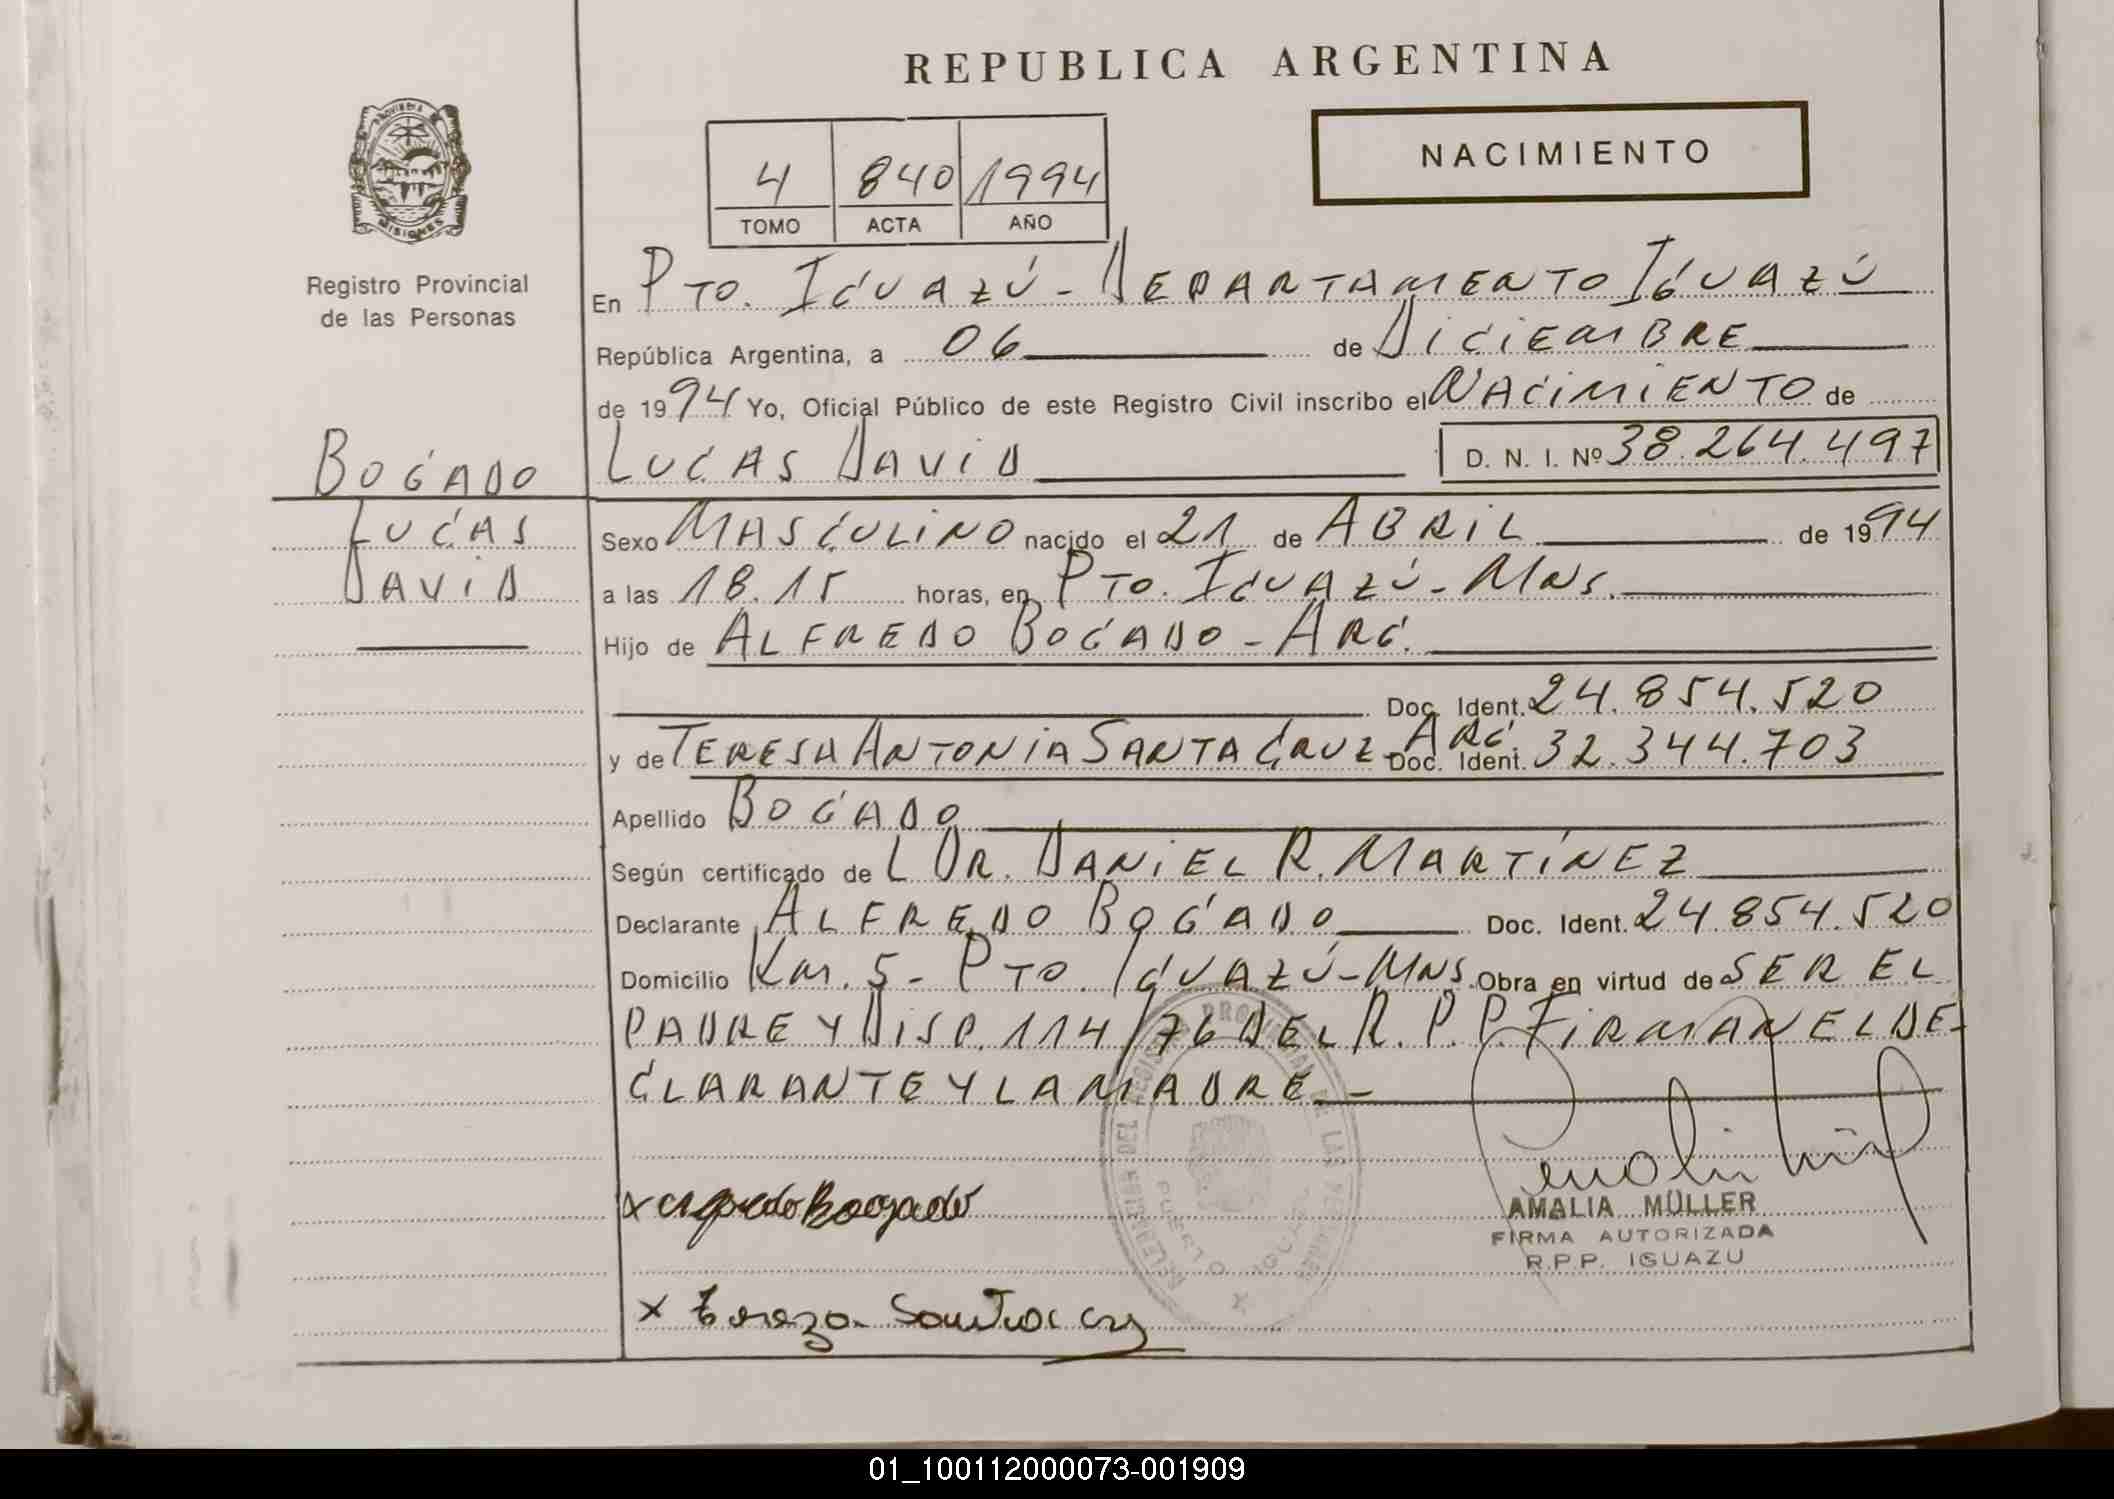 REPUBLICA ARGENTINA
NACIMIENTO
4 840 1994
TOMO ACTA AÑO
PROVINCIA DE MISIONES
Registro Provincial
de las Personas
En PTO. IGUAZÚ - DEPARTAMENTO IGUAZÚ
República Argentina, a 06 de DICIEMBRE
de 1994 Yo, Oficial Público de este Registro Civil inscribo el NACIMIENTO de
BOGADO
LUCAS DAVID D. N. I. Nº 38.264.497
LUCAS
DAVID
Sexo MASCULINO nacido el 21 de ABRIL de 1994
a las 18.15 horas, en PTO. IGUAZÚ - MNS.
Hijo de ALFREDO BOGADO - ARG.
Doc. Ident. 24.854.520
y de TERESA ANTONIA SANTA CRUZ ARG Doc. Ident. 32.344.703
Apellido BOGADO
Según certificado de L DR. DANIEL R. MARTÍNEZ
Declarante ALFREDO BOGADO Doc. Ident. 24.854.520
Domicilio Km. 5 - PTO. IGUAZÚ - MNS. Obra en virtud de SER EL
PADRE Y DISP. 114/76 DEL R. P. P. FIRMAN EL DE-
CLARANTE Y LA MADRE -
x Alfredo Boogado
x Tereza Santa Cruz
AMALIA MÜLLER
FIRMA AUTORIZADA
R.P.P. IGUAZU
01_100112000073-001909